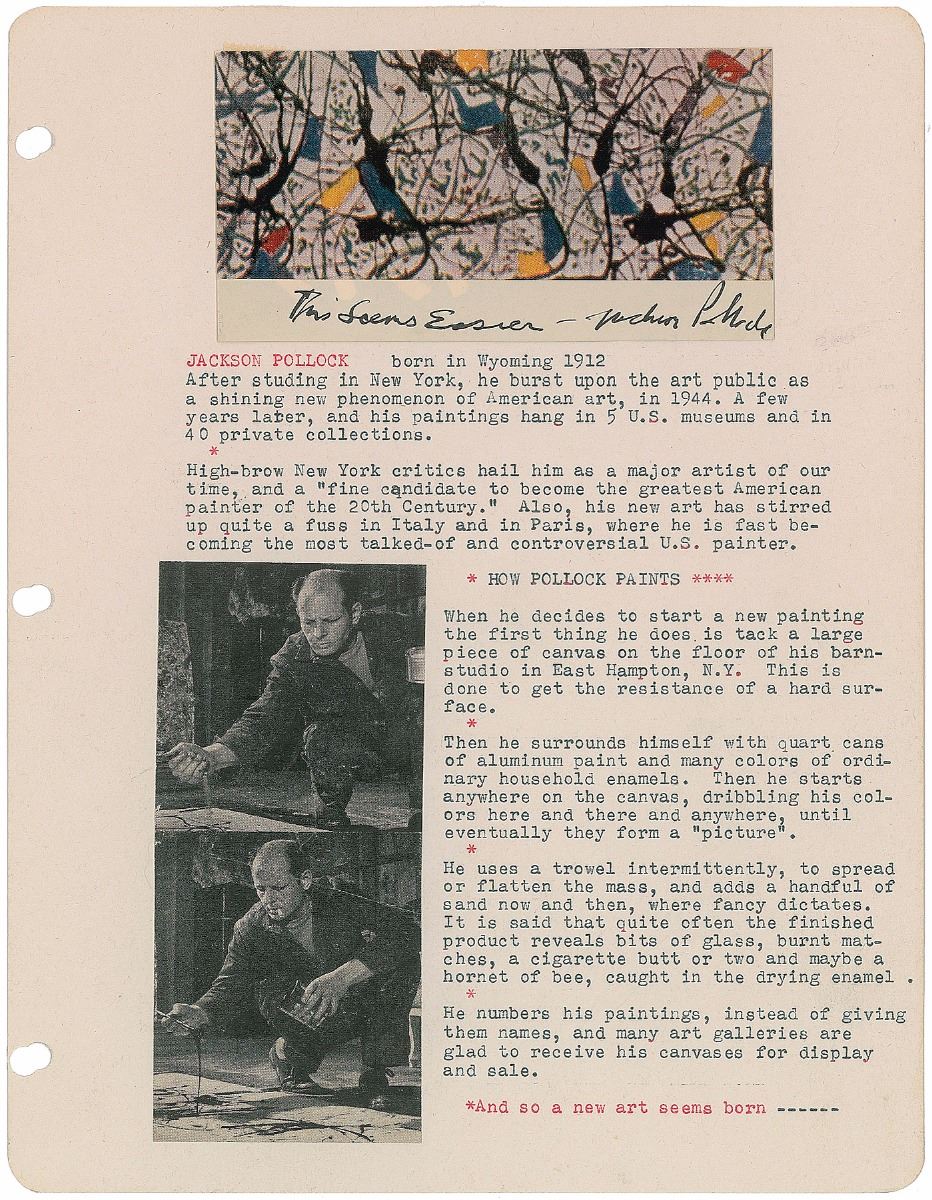 This Seems Easier — Jackson Pollock
JACKSON POLLOCK born in Wyoming 1912
After studing in New York, he burst upon the art public as
a shining new phenomenon of American art, in 1944. A few
years later, and his paintings hang in 5 U.S. museums and in
40 private collections.
*
High-brow New York critics hail him as a major artist of our
time, and a "fine candidate to become the greatest American
painter of the 20th Century." Also, his new art has stirred
up quite a fuss in Italy and in Paris, where he is fast be-
coming the most talked-of and controversial U.S. painter.
* HOW POLLOCK PAINTS ****
When he decides to start a new painting
the first thing he does is tack a large
piece of canvas on the floor of his barn-
studio in East Hampton, N.Y. This is
done to get the resistance of a hard sur-
face.
*
Then he surrounds himself with quart cans
of aluminum paint and many colors of ordi-
nary household enamels. Then he starts
anywhere on the canvas, dribbling his col-
ors here and there and anywhere, until
eventually they form a "picture".
*
He uses a trowel intermittently, to spread
or flatten the mass, and adds a handful of
sand now and then, where fancy dictates.
It is said that quite often the finished
product reveals bits of glass, burnt mat-
ches, a cigarette butt or two and maybe a
hornet of bee, caught in the drying enamel .
*
He numbers his paintings, instead of giving
them names, and many art galleries are
glad to receive his canvases for display
and sale.
*And so a new art seems born ------